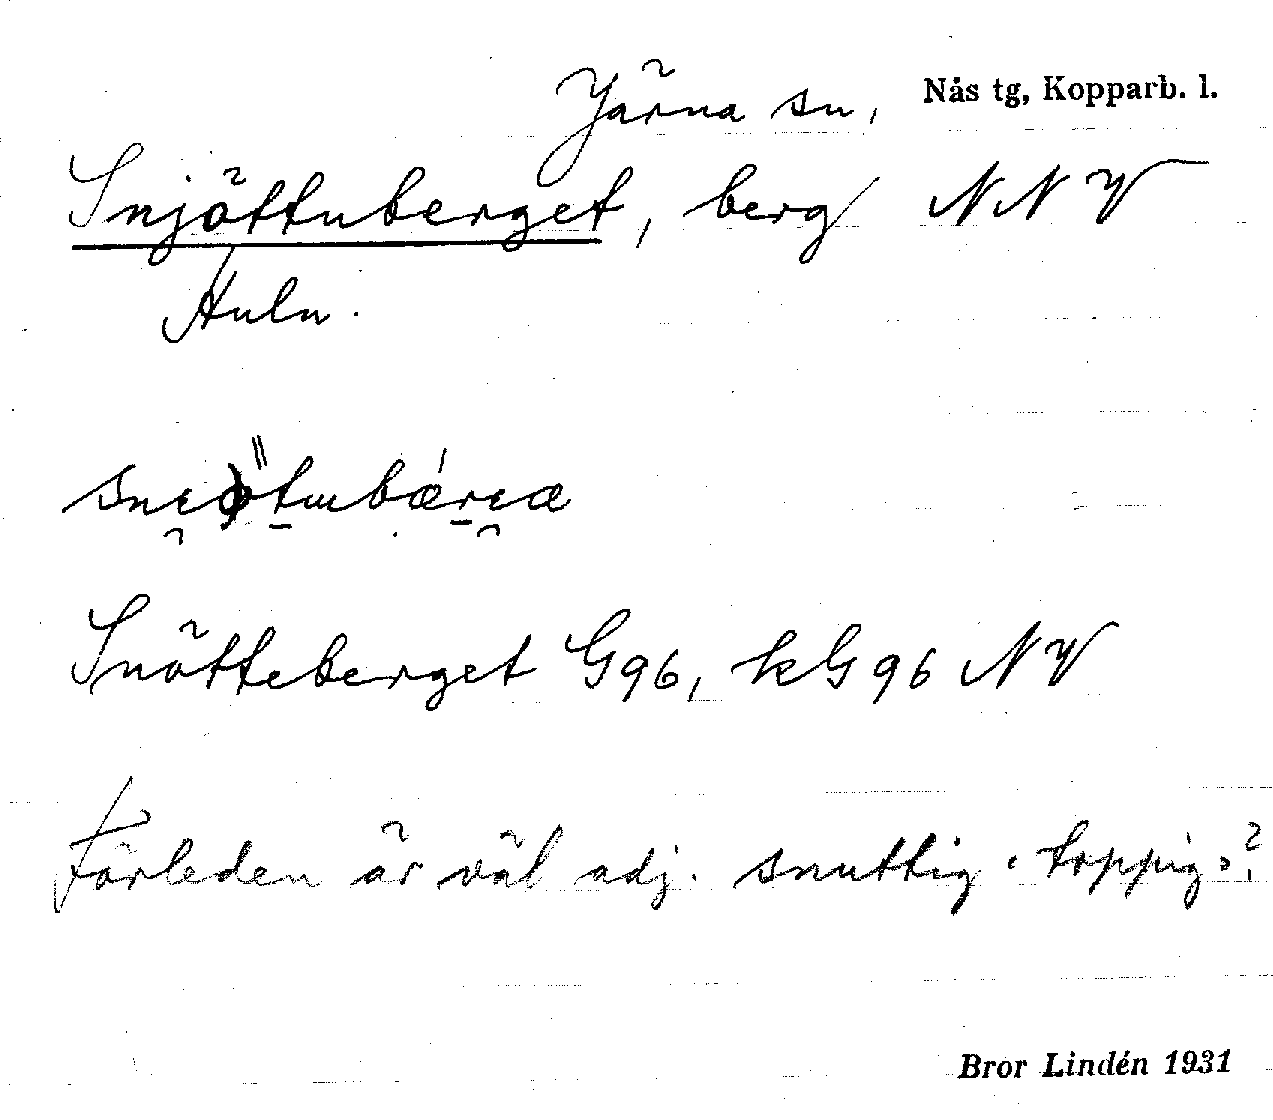 Järna sn, Nås tg, Kopparb. l.
Snjöttuberget, berg NNV
Huln.
Snötteberget G96, kG96 NV
Förleden är väl adj. snuttig 'toppig'?
Bror Lindén 1931